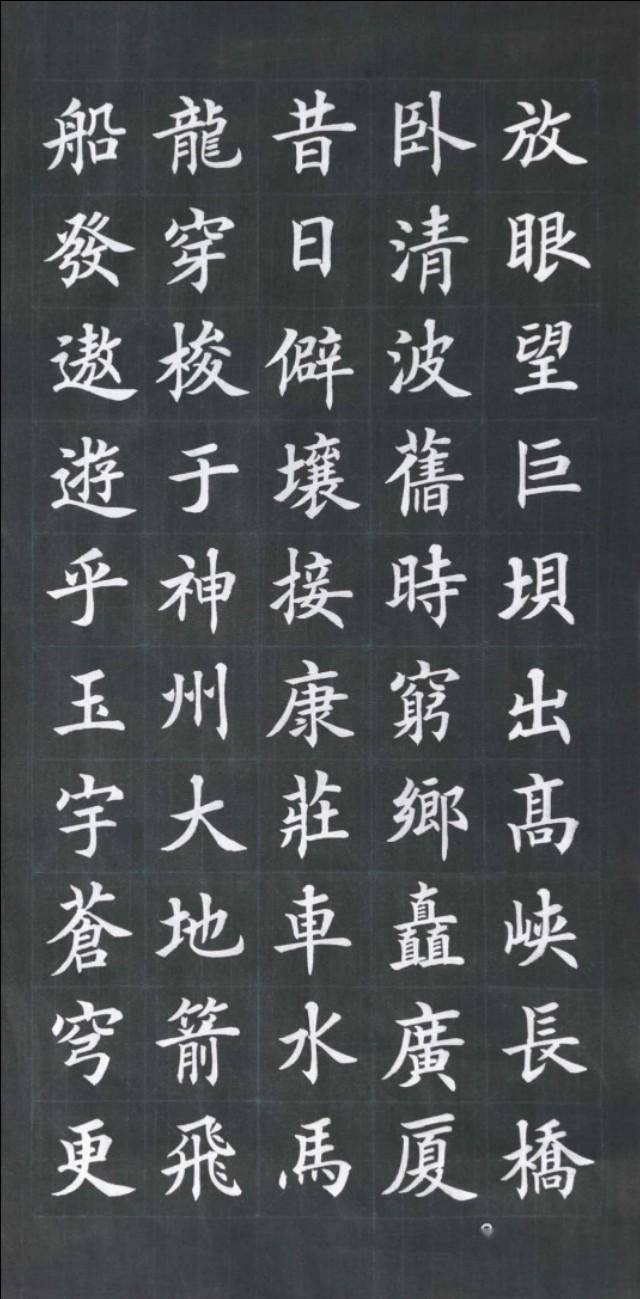 放眼望巨垻出髙峽長橋
臥清波舊時窮鄉矗廣厦
昔日僻壤接康莊車水馬
龍穿梭于神州大地箭飛
船發遨遊乎玉宇蒼穹更